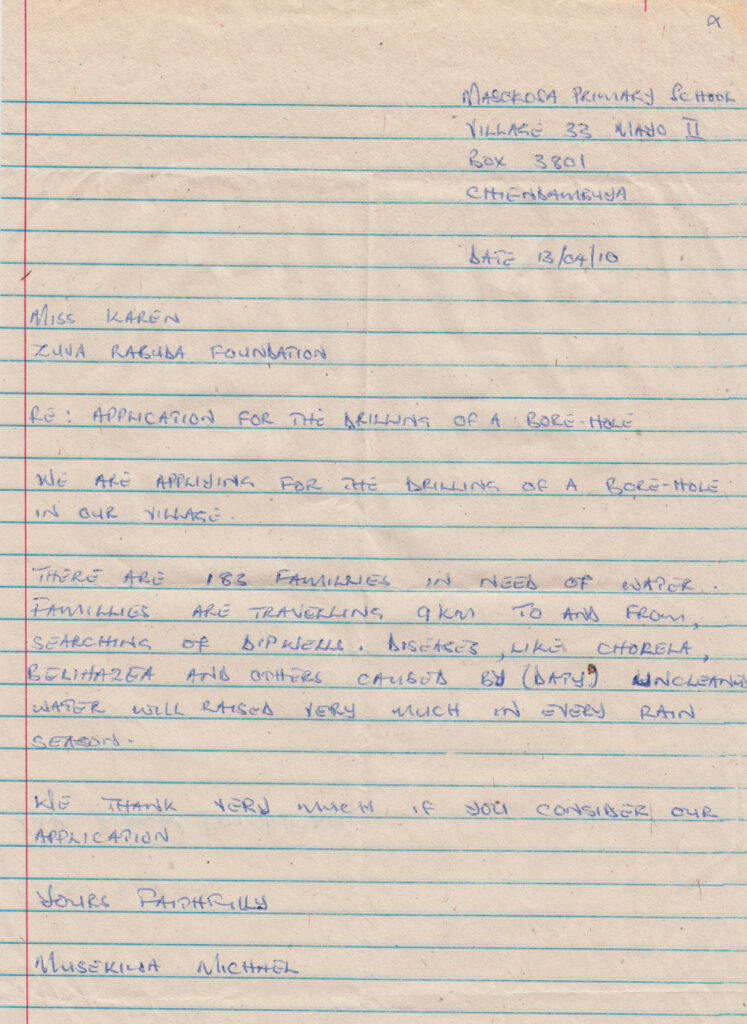 MASOKOSA PRIMARY SCHOOL
VILLAGE 33 MAYO II
BOX 3801
CHIENDAMBUYA
DATE 13/04/10
MISS KAREN
ZUVA RABUDA FOUNDATION
RE: APPLICATION FOR THE DRILLING OF A BORE-HOLE
WE ARE APPLYING FOR THE DRILLING OF A BORE-HOLE
IN OUR VILLAGE.
THERE ARE 183 FAMILLIES IN NEED OF WATER.
FAMILLIES ARE TRAVELLING 9KM TO AND FROM,
SEARCHING OF DIPWELLS. DISEASES, LIKE CHORELA,
BELIHAZEA AND OTHERS CAUSED BY (DATY) UNCLEANED
WATER WILL RAISED VERY MUCH IN EVERY RAIN
SEASON.
WE THANK VERY MUCH IF YOU CONSIDER OUR
APPLICATION
YOURS FAITHFILLY
MUSEKIWA MICHAEL